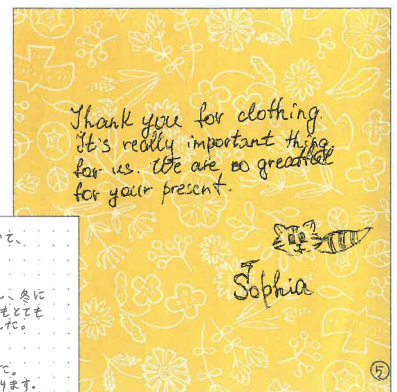 Thank you for clothing.
It's really important thing
for us. We are so
for your present.
Sophia
いて、
い、冬に
もとても
した。
て。
ります。
⑤